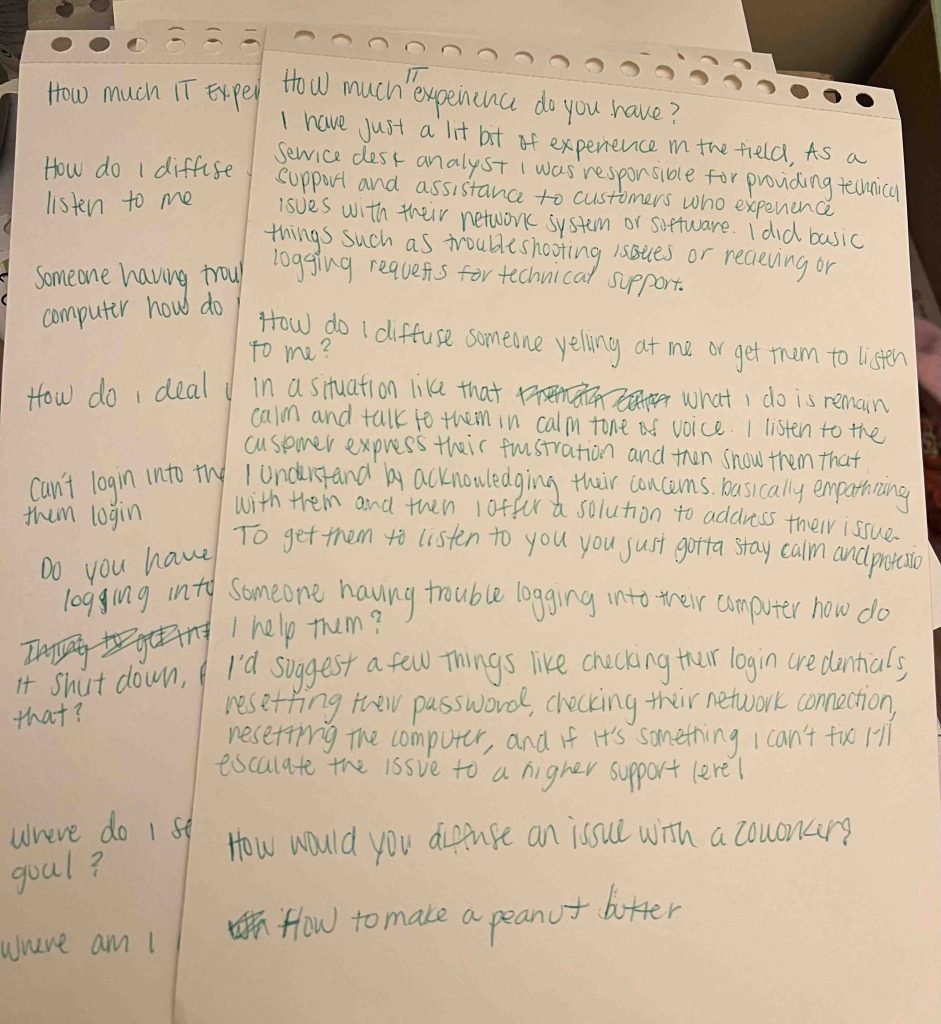 How much IT Exper
How do I diffuse
listen to me
Someone having trou
computer how do
How do I deal
Can't login into the
them login
Do you have
logging into
it shut down,
that?
Where do I se
goal?
Where am I
How much IT experience do you have?
I have just a lit bit of experience in the field, As a
service desk analyst I was responsible for providing technical
support and assistance to customers who experience
isues with their network system or software. I did basic
things such as troubleshooting issues or recieving or
logging requests for technical support.
How do I diffuse someone yelling at me or get them to listen
to me?
in a situation like that what I do is remain
calm and talk to them in calm tone of voice. I listen to the
customer express their frustration and then show them that
I understand by acknowledging their concerns. basically empathizing
with them and then I offer a solution to address their issue.
To get them to listen to you you just gotta stay calm and professio
Someone having trouble logging into their computer how do
I help them?
I'd suggest a few things like checking their login credentials,
resetting their password, checking their network connection,
resetting the computer, and if it's something I can't fix I'll
escalate the issue to a higher support level
How would you diffuse an issue with a coworker?
How to make a peanut butter